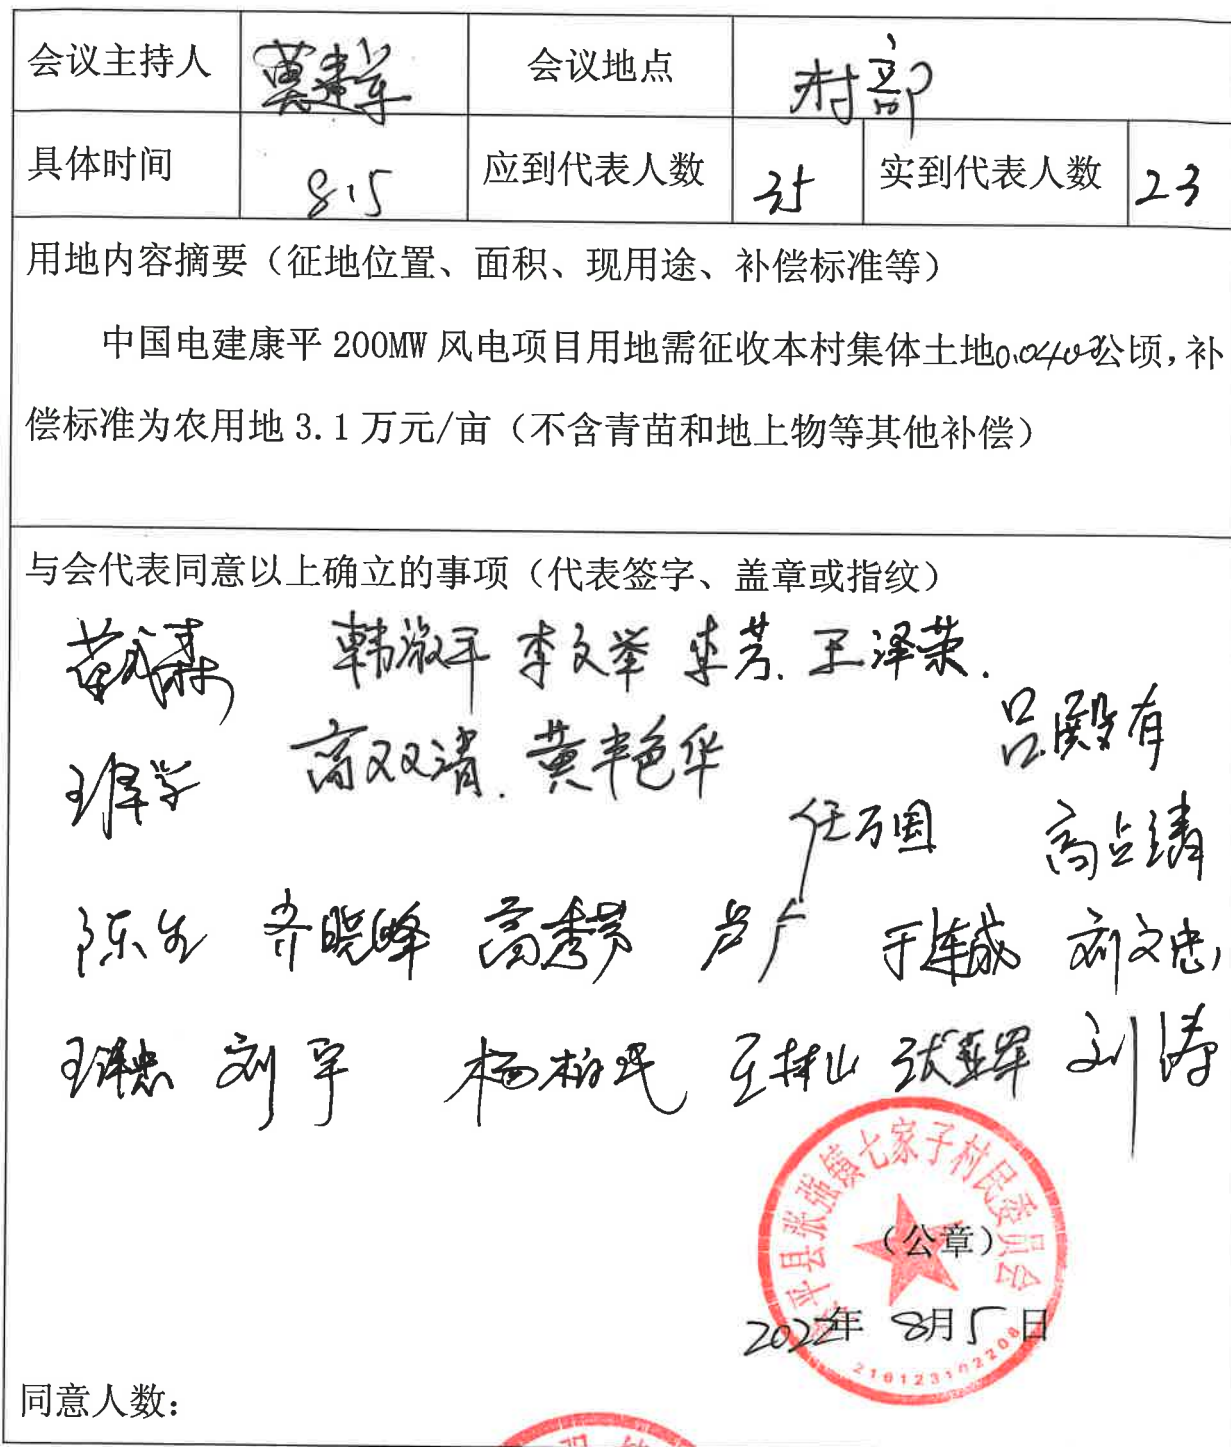 会议主持人 会议地点 村部
具体时间 8.5 应到代表人数 35 实到代表人数 23
用地内容摘要（征地位置、面积、现用途、补偿标准等）
中国电建康平 200MW 风电项目用地需征收本村集体土地公顷，补
偿标准为农用地 3.1 万元/亩（不含青苗和地上物等其他补偿）
与会代表同意以上确立的事项（代表签字、盖章或指纹）
韩淑平 李文举 李芳. 王泽荣.
吕殿有
高双清. 黄艳华
任万国
陈生 齐晓峰 高秀芳 卢广 于连成 刘文忠
刘宇 杨柏民 王树山 张亚军 刘涛
平县张强镇七家子村民委员会
（公章）
2022年 8月5日
同意人数：